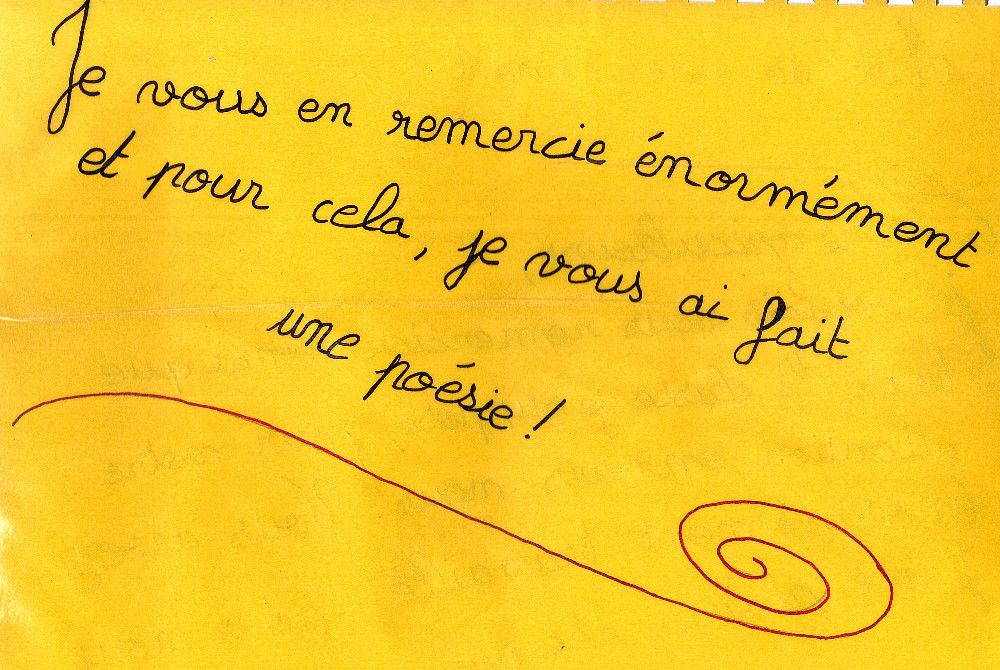 Je vous en remercie énormément
et pour cela, je vous ai fait
une poésie !